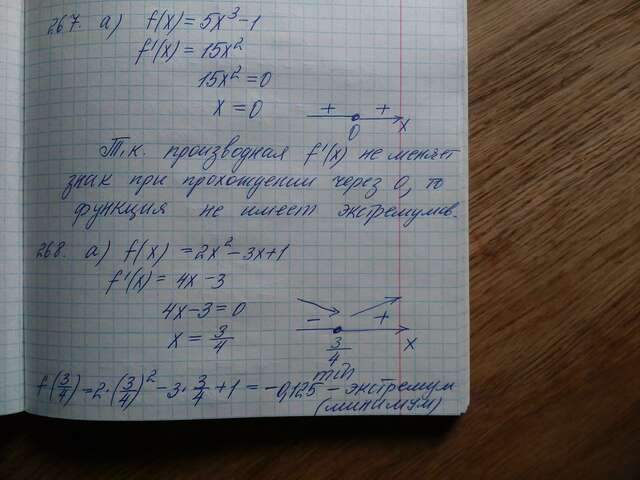 267. а) f(x) = 5x³-1
f'(x) = 15x²
15x² = 0
x = 0
+ +
0 x
Т.к. производная f'(x) не меняет
знак при прохождении через 0, то
функция не имеет экстремумов.
268. а) f(x) = 2x²-3x+1
f'(x) = 4x-3
4x-3 = 0
x = 3/4
- +
3/4 x
min
f(3/4) = 2·(3/4)² - 3·3/4 + 1 = -0,125 - экстремум
(минимум)